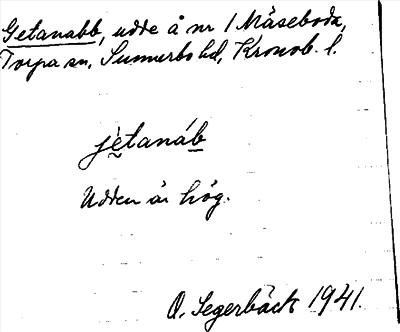 Getanabb, udde å nr 1 Måseboda,
Torpa sn, Sunnerbo hd, Kronob. l.
jètanáb
Udden är hög.
O. Segerbäck 1941.